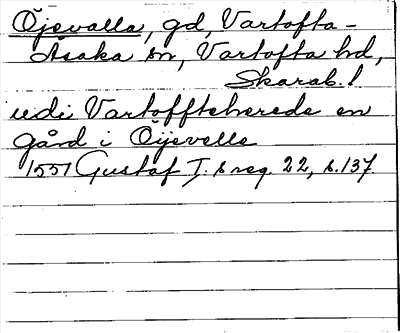 Öjevalla, gd, Vartofta-
Åsaka sn, Vartofta hd,
Skarab. l
udi Vartoffteherede en
gård i Öijevelle
1551 Gustaf I. s reg. 22, s. 137